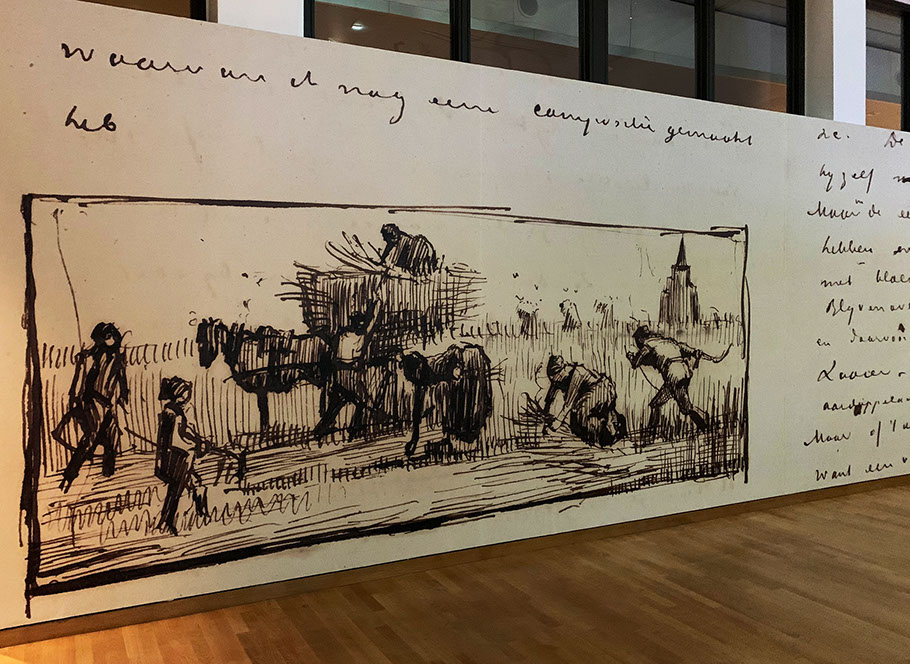 waarvan ik nog eene compositie gemaakt
heb
De
hyzelf
Maar de
hebben
met
Blyven
en daarvan
Laaier
aardappelen
Maar of 't
want een